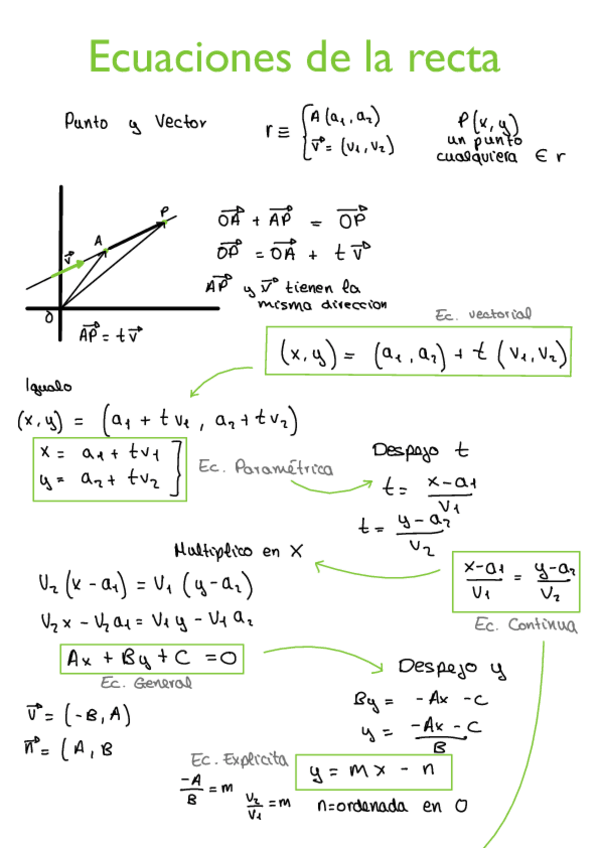 Ecuaciones de la recta
Punto y Vector
r ≡ { A (a₁, a₂)
v⃗ = (v₁, v₂)
P(x, y)
un punto
cualquiera ∈ r
P
A
v⃗
O
AP⃗ = t v⃗
OA⃗ + AP⃗ = OP⃗
OP⃗ = OA⃗ + t v⃗
AP⃗ y v⃗ tienen la
misma direccion
Ec. vectorial
(x, y) = (a₁, a₂) + t (v₁, v₂)
Igualo
(x, y) = (a₁ + t v₁ , a₂ + t v₂)
x = a₁ + t v₁
y = a₂ + t v₂
Ec. Paramétrica
Despejo t
t = x-a₁ / v₁
t = y-a₂ / v₂
Multiplico en X
x-a₁ / v₁ = y-a₂ / v₂
Ec. Continua
v₂ (x - a₁) = v₁ (y - a₂)
v₂x - v₂a₁ = v₁y - v₁a₂
Ax + By + C = 0
Ec. General
v⃗ = (-B, A)
n⃗ = (A, B
Despejo y
By = -Ax - C
y = -Ax - C / B
Ec. Explícita
y = mx - n
-A / B = m
v₂ / v₁ = m
n=ordenada en O